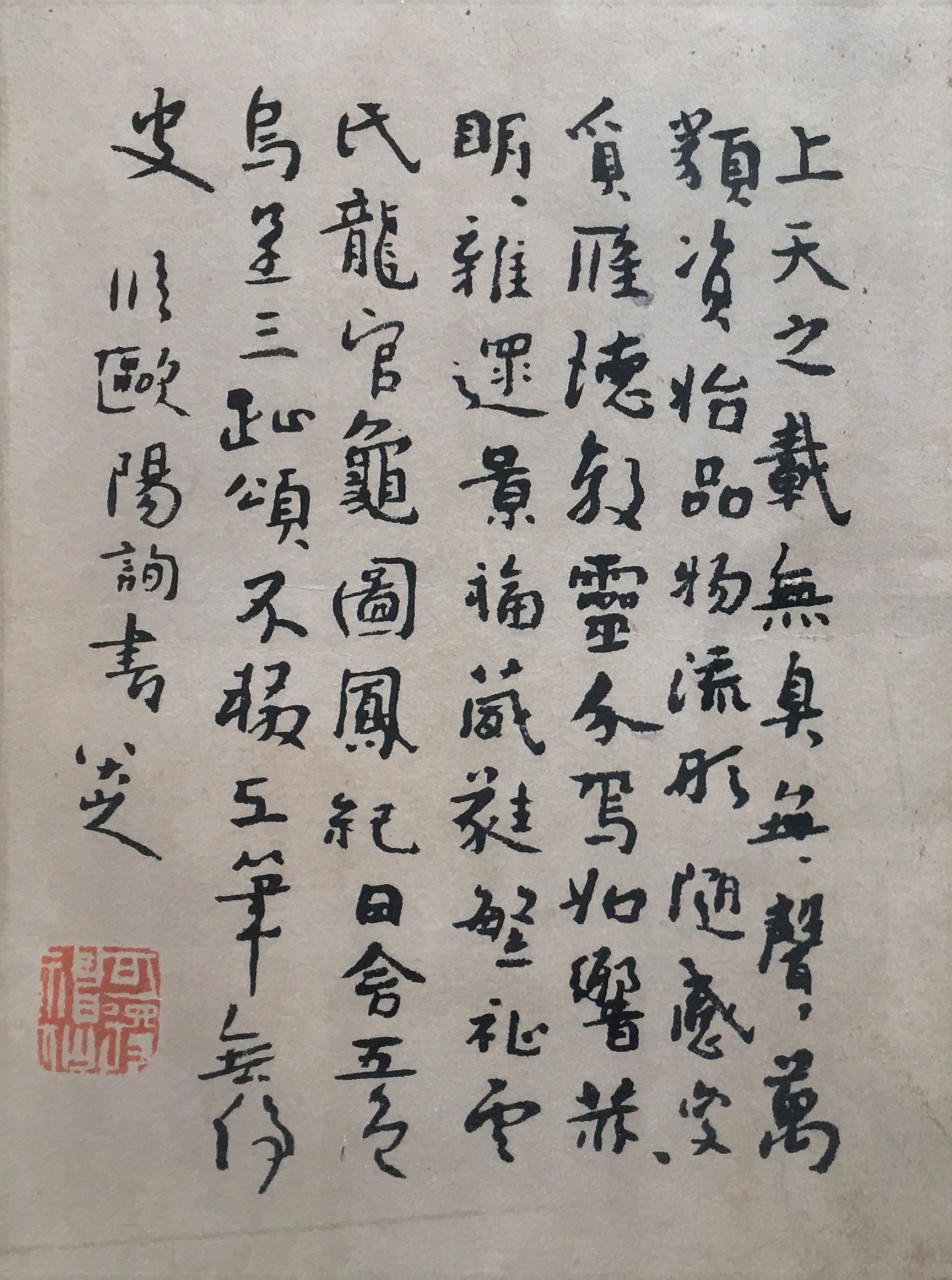 上天之載無臭無聲萬
類資始品物流形隨感變
質應德效靈介焉如響赫、
明、雜遝景福葳蕤繁祉雲
氏龍官龜圖鳳紀日含五色
烏呈三趾頌不輟工筆無停
史 臨歐陽詢書 八大山人
可得神仙